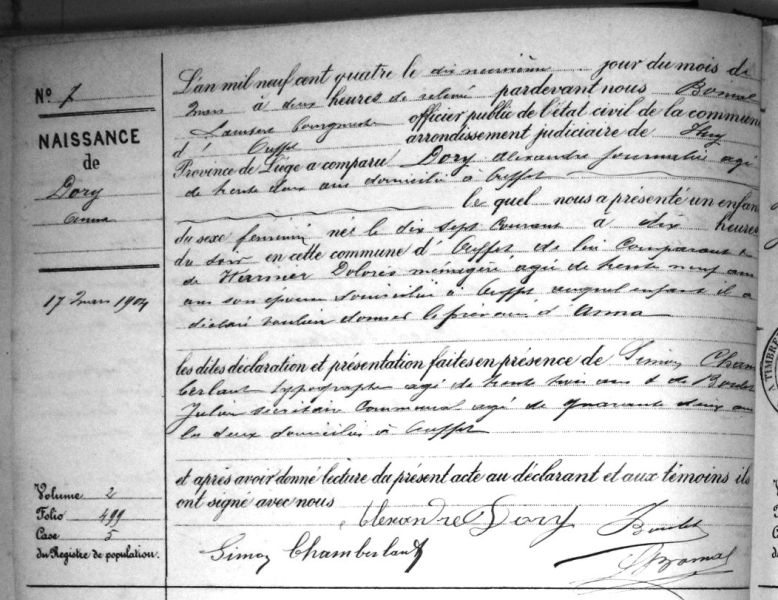 N° 7
NAISSANCE
de
Dory
Anna
17 Mars 1904
Volume 2
Folio 499
Case 5
du Registre de population.
L'an mil neuf cent quatre le dix neuvième jour du mois de
Mars à deux heures de relevée pardevant nous Bomal
Lambert Bourgmestre officier public de l'état civil de la commune
d' Ouffet arrondissement judiciaire de Huy
Province de Liége a comparu Dory Alexandre journalier agé
de trente deux ans domicilié à Ouffet
le quel nous a présenté un enfan
du sexe féminin né le dix sept Courant à dix heures
du soir en cette commune d' Ouffet de lui Comparant &
de Warnier Dolorès ménagère agée de trente neuf ans
son épouse domiciliée à Ouffet auquel enfant il a
déclaré vouloir donner le prénom d' Anna
les dites déclaration et présentation faites en présence de Simon Cham
berlant typographe agé de trente trois ans & de Boulet
Jules secrétaire Communal agé de quarante deux ans
les deux domiciliés à Ouffet
et après avoir donné lecture du présent acte au déclarant et aux témoins ils
ont signé avec nous
Alexandre Dory Boulet
Simon Chamberlant LBomal
A TIMBRE